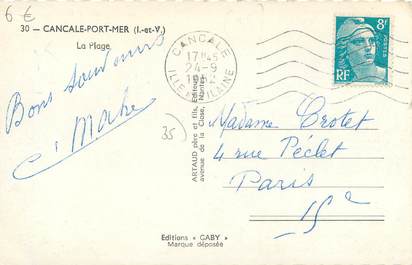 6 €
30 — CANCALE-PORT-MER (I.-et-V.)
La Plage
Bons souvenirs
35
CANCALE
17H45
24-9
ILLE-ET-VILAINE
8F
POSTES
RF
ARTAUD père et fils, Editeurs
avenue de la Close, Nantes
Madame Crotet
4 rue Péclet
Paris
15e
Editions « GABY »
Marque déposée